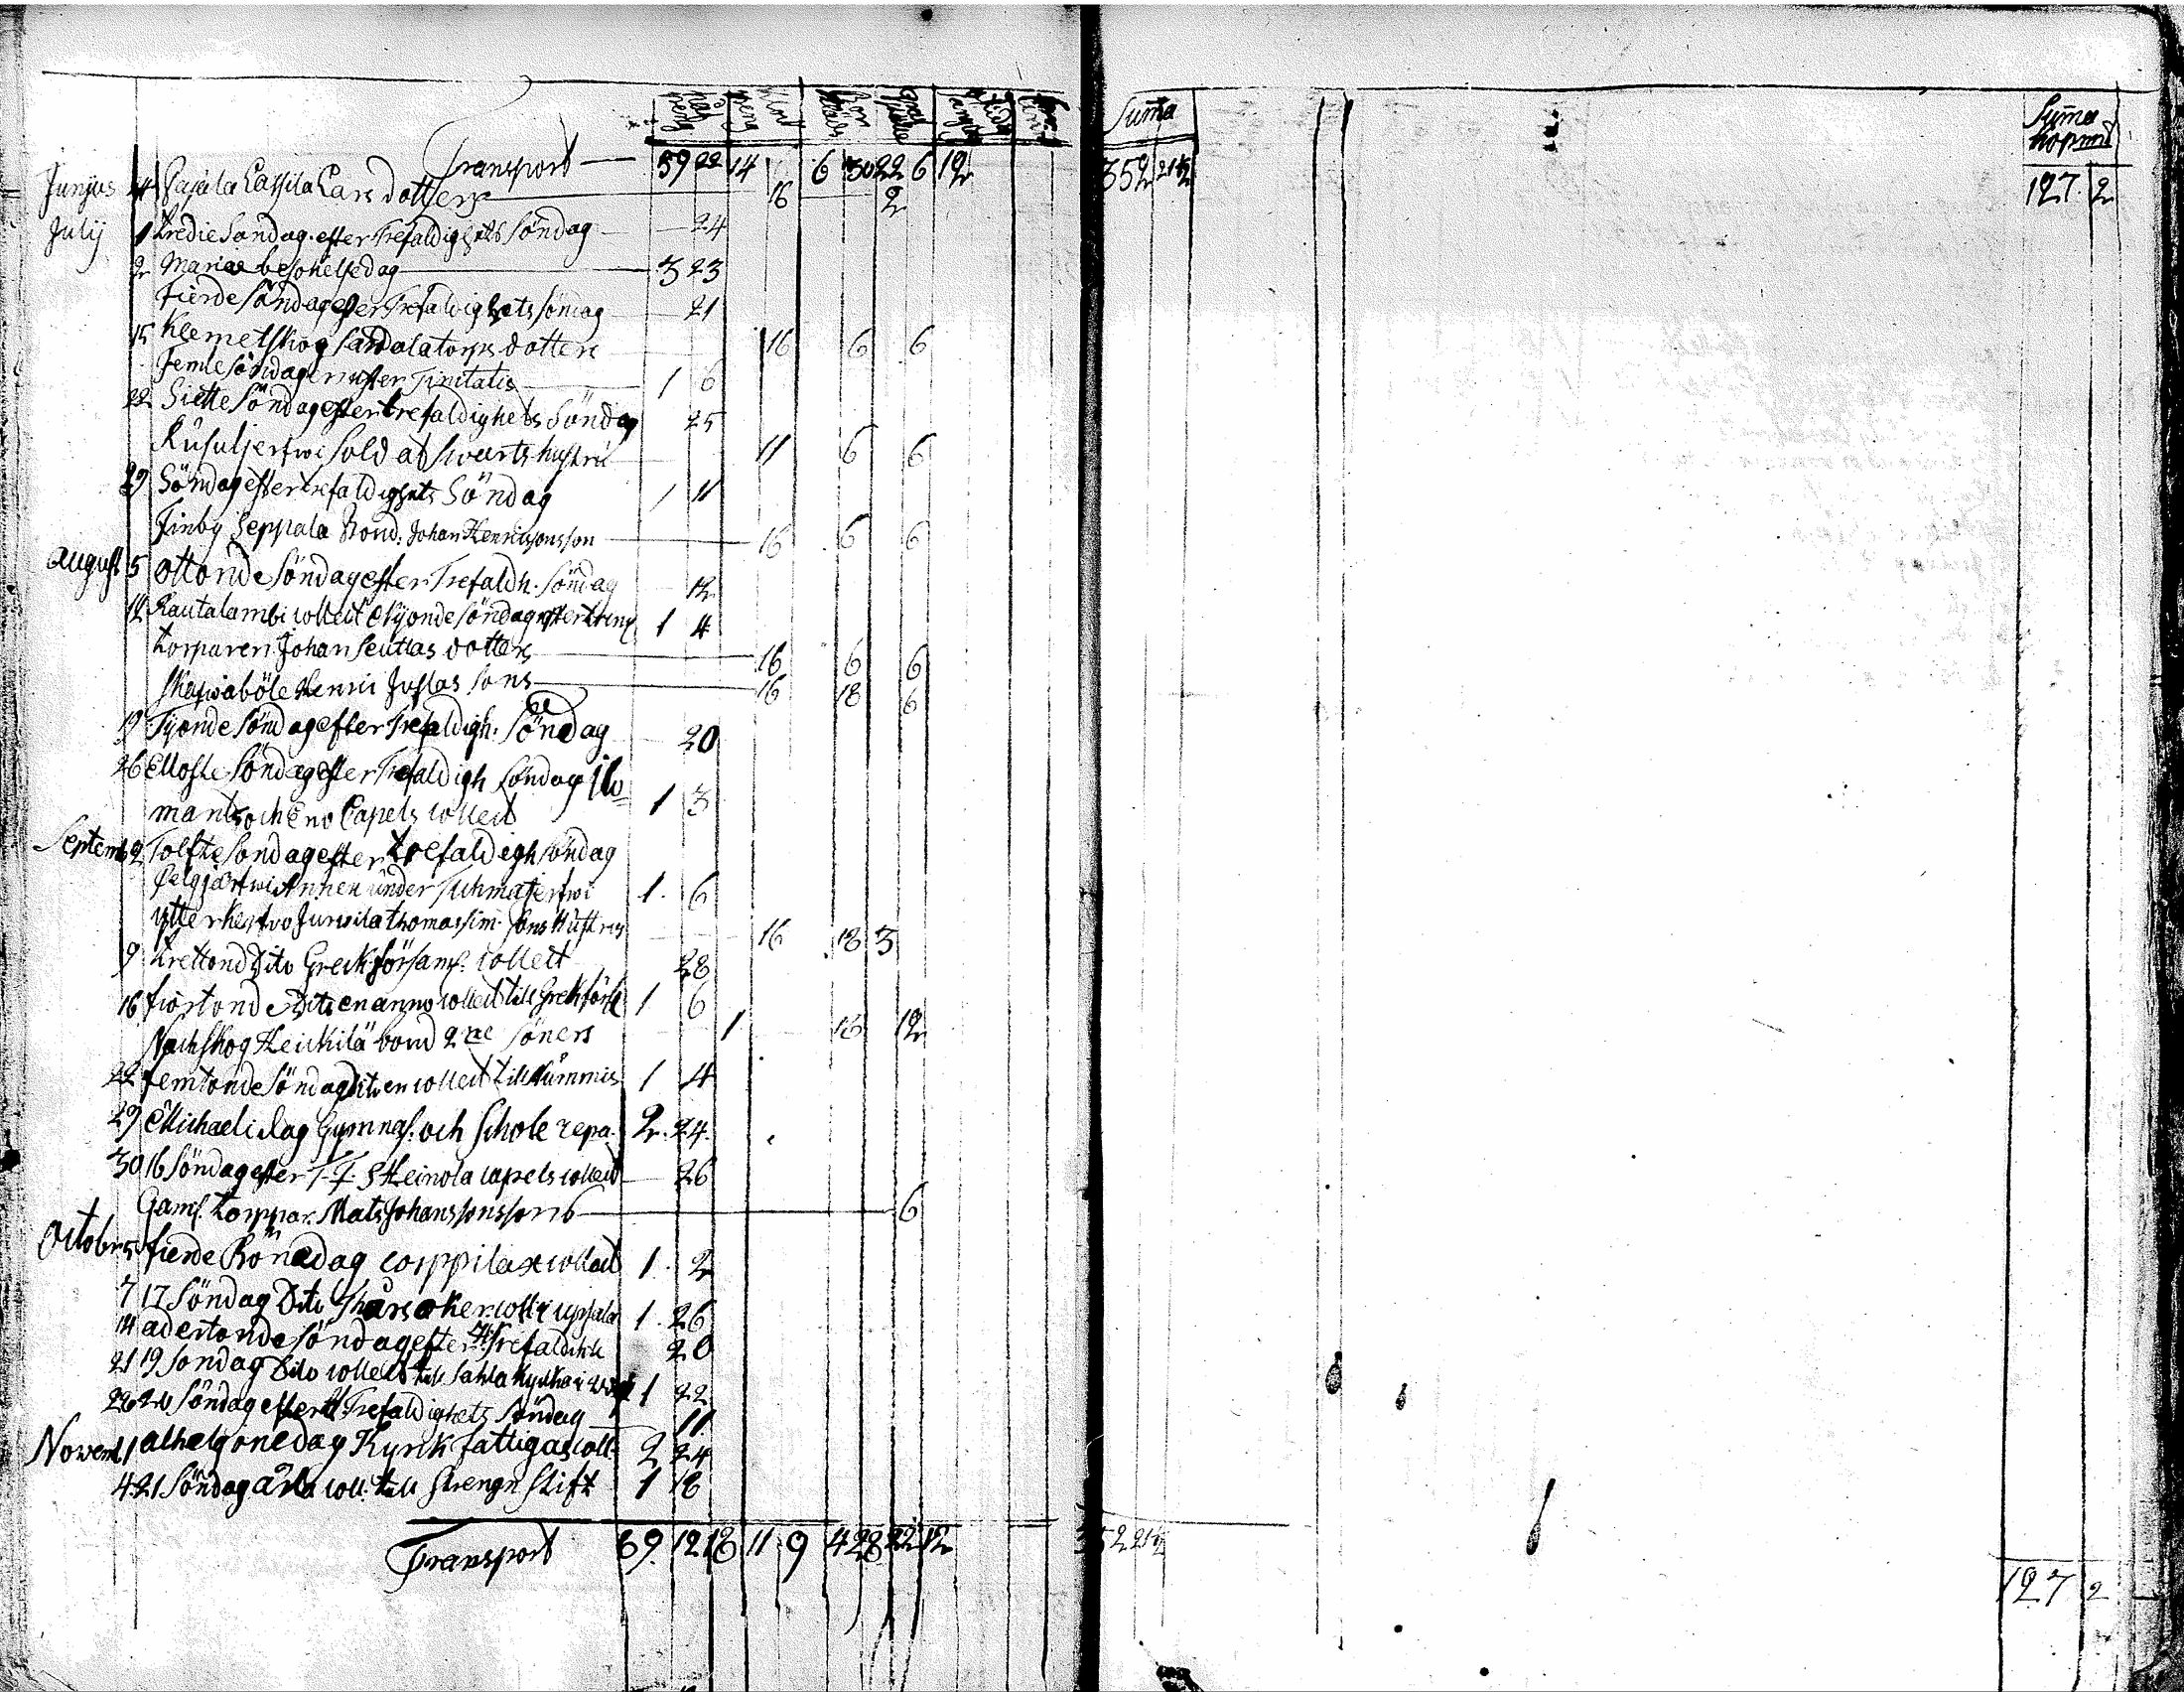 Suma
Suma
hopmt
Transport 39 22 14 6 30 22 6 12 352 21½
Junyus 24 Papala Cassila Lars dotters 16 2 127 2
July 1 Tredie Söndag efter Trefaldighets Söndag 24
2 Mariæ besökelsedag 3 23
Fierde Söndag efter Trefaldighets Söndag 21
15 Klemetskog dotters 16 6 6
Femte Söndagen efter Trinitatis 1 6
22 Siette Söndag efter trefaldighets Söndag 25
Rusuljerfwi Soldat Swarts hustru 11 6 6
29 Söndag efter trefaldighets Söndag 1 11
Finby Seppala Bond. Johan Henrissonsson 16 6 6
August 5 Ottonde Söndag efter Trefaldh. Söndag 12
12 Rautalambi collect Nijonde Söndag efter 1 4
torparen Johan dotters 16 6 6
Henric Justas sons 16 18 6
19 Tijonde Söndag efter Trefaldigh. Söndag 20
26 Ellofte Söndag efter Trefaldigh Söndag Ilo=
mants och Eno Capels collect 1 3
Septemb 2 Tolfte Söndag efter trefaldigh söndag
under Tuhmajerfwi 1. 6
ytterkerfvo Jussila Thomas Sim. Sons Hustrus 16 18 3
9 trettond Dito Greck församl. collect 28
16 fiortonde Dito en anno collect till Grek förs 1 6
Nackskog Heickilä bond 2ne Söners 1 18 12
22 femtonde Söndag Dito en collect till Nummis 1 4
29 Michaelidag Gymnas. och Schole repa. 2. 24.
30 16 Söndag efter T. Heinola capels collect 26
Gaml. torppar. Mats Johanssonssons 6
Octobr 5 fierde Bönedag coppilax collect 1. 2
7 17 Söndag Dito Thorsåker coll i uppsala 1. 26
14 adertonde söndag efter H. Trefaldh 20
21 19 Söndag Dito collect till Sahla Kyrka 1 22
28 20 Söndag efter H. Trefaldighets Söndag 11
Novemb 1 alhelgonedag Kyrk fattigas coll. 2 24
4 21 Söndag coll. till Strengn Stift 1 18
Transport 69. 12 18 11 9 4 28 22 12 352 21½
127 2